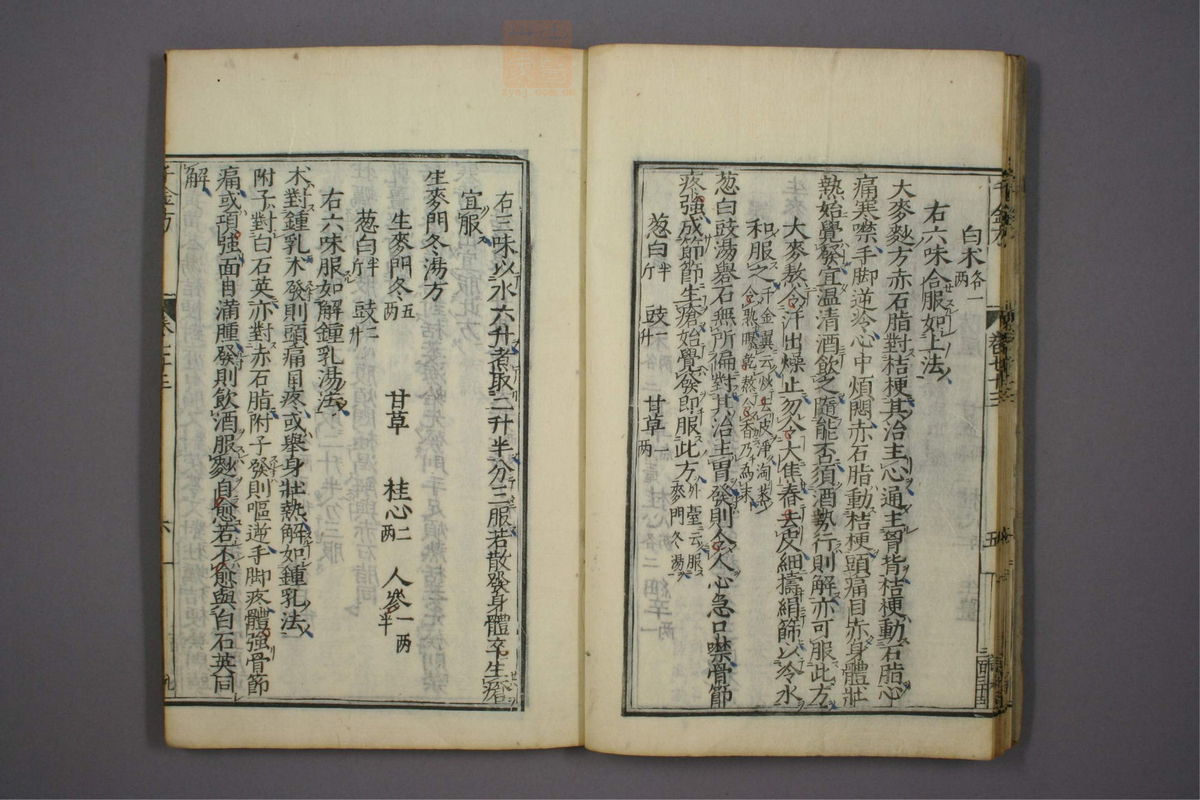 白朮各一两
右六味合服如上法
大麥麨方赤石脂對桔梗其治主心通主胷背桔梗動石脂心
痛寒噤手脚逆冷心中煩悶赤石脂動桔梗頭痛目赤身體壯
熱始覺發宜温清酒飲之隨能否須酒勢行則解亦可服此方
大麥熬令汗出燥止勿令大焦舂去皮細擣絹篩以冷水
和服之千金翼云炒去皮淨淘蒸令熟曝乾熬令香乃為末
葱白豉湯礜石無所偏對其治主胃發則令人心急口噤骨節
疼強成節節生瘡始覺發即服此方外臺云服麥門冬湯
葱白半斤 豉二升 甘草一两
右三味以水六升煮取二升半分三服若散發身體卒生瘡
宜服
生麥門冬湯方
生麥門冬五两 甘草 桂心二两 人參一两半
葱白半斤 豉二升
右六味服如解鍾乳湯法
朮對鍾乳朮發則頭痛目疼或舉身壯熱解如鍾乳法
附子對白石英亦對赤石脂附子發則嘔逆手脚疼體強骨節
痛或項強面目滿腫發則飲酒服麨自愈若不愈與白石英同
解